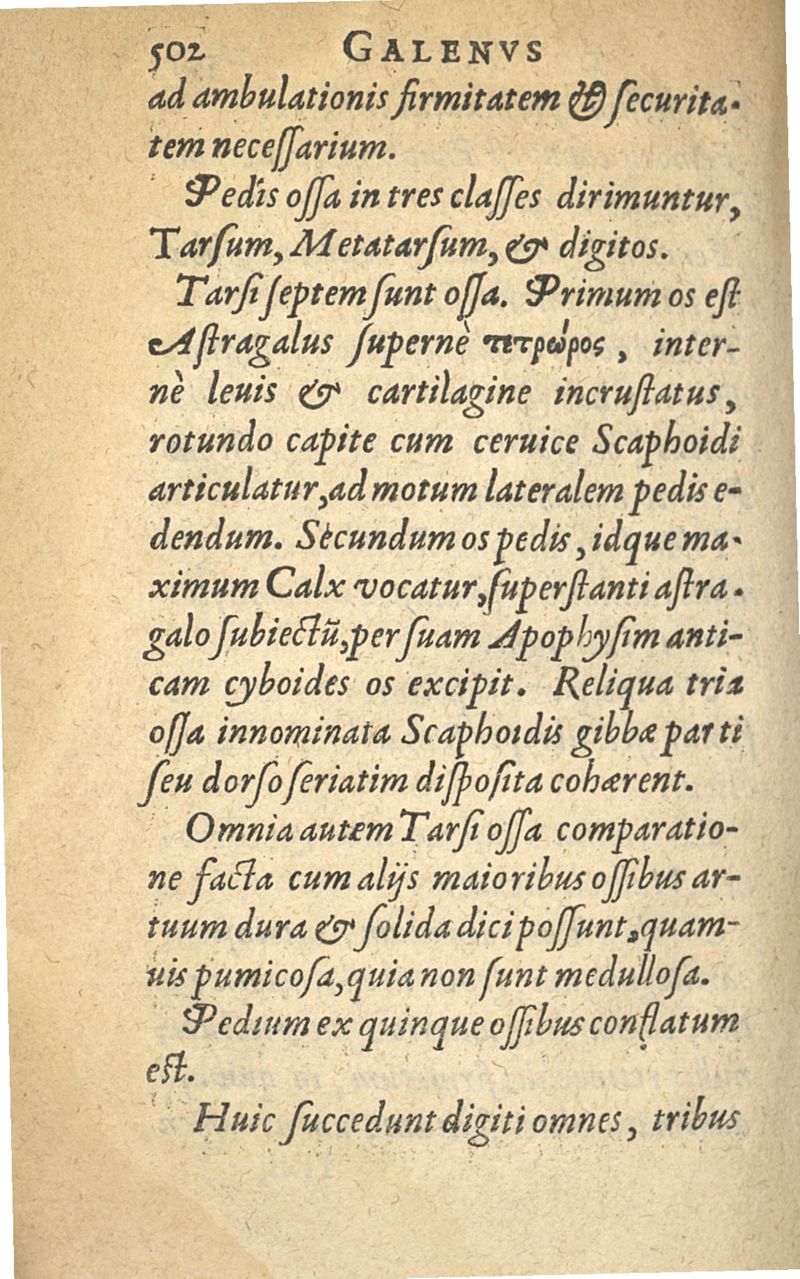 502 GALENVS
ad ambulationis firmitatem & ſecurita-
tem neceſſarium.
Pedis oſſa in tres claſſes dirimuntur,
Tarſum, Metatarſum, & digitos.
Tarſi ſeptem ſunt oſſa. Primum os eſt
Aſtragalus ſupernè τετρώρος, inter-
nè leuis & cartilagine incruſtatus,
rotundo capite cum ceruice Scaphoidi
articulatur, ad motum lateralem pedis e-
dendum. Secundum os pedis, idque ma-
ximum Calx vocatur, ſuperſtanti aſtra-
galo ſubiectũ, per ſuam Apophyſim anti-
cam cyboides os excipit. Reliqua tria
oſſa innominata Scaphoidis gibbæ parti
ſeu dorſo ſeriatim diſpoſita cohærent.
Omnia autem Tarſi oſſa comparatio-
ne facta cum alijs maioribus oſſibus ar-
tuum dura & ſolida dici poſſunt, quam-
uis pumicoſa, quia non ſunt medulloſa.
Pedium ex quinque oſſibus conflatum
eſt.
Huic ſuccedunt digiti omnes, tribus